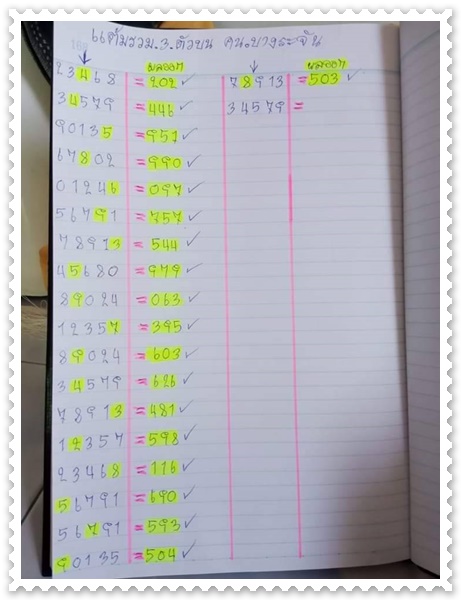 แต้มรวม.3.ตัวบน คน.บางระจัน
ผลออก
23468 = 202 ✓
34579 = 446 ✓
90135 = 951 ✓
67802 = 990 ✓
01246 = 097 ✓
56791 = 757 ✓
78913 = 544 ✓
45680 = 979 ✓
89024 = 063 ✓
12357 = 395 ✓
89024 = 603 ✓
34579 = 626 ✓
78913 = 481 ✓
12357 = 598 ✓
23468 = 116 ✓
56791 = 690 ✓
56791 = 593 ✓
90135 = 504 ✓
ผลออก
78913 = 503 ✓
34579 =